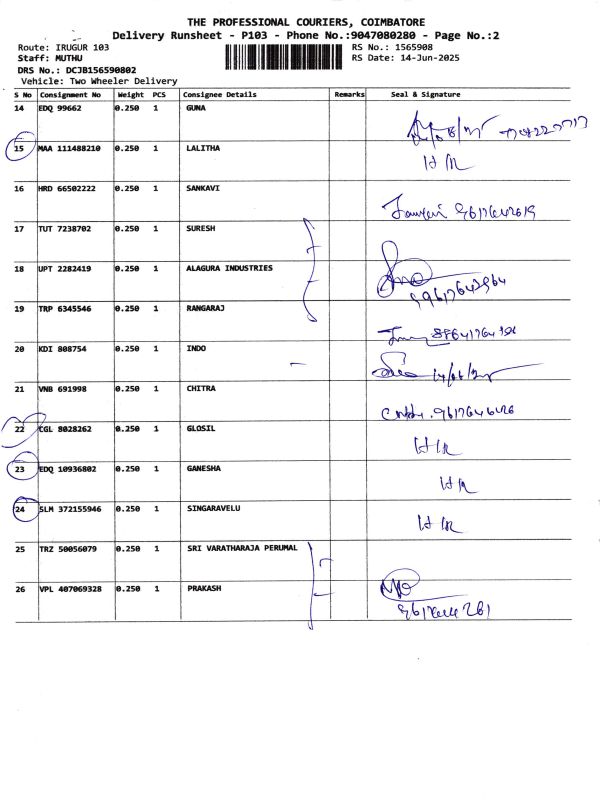 THE PROFESSIONAL COURIERS, COIMBATORE
Delivery Runsheet - P103 - Phone No.:9047080280 - Page No.:2
Route: IRUGUR 103 RS No.: 1565908
Staff: MUTHU RS Date: 14-Jun-2025
DRS No.: DCJB156590802
Vehicle: Two Wheeler Delivery
S No Consignment No Weight PCS Consignee Details Remarks Seal & Signature
14 EDQ 99662 0.250 1 GUNA
15 MAA 111488210 0.250 1 LALITHA
16 HRD 66502222 0.250 1 SANKAVI
17 TUT 7238702 0.250 1 SURESH
18 UPT 2282419 0.250 1 ALAGURA INDUSTRIES
19 TRP 6345546 0.250 1 RANGARAJ
20 KDI 808754 0.250 1 INDO
21 VNB 691998 0.250 1 CHITRA
22 CGL 8028262 0.250 1 GLOSIL
23 EDQ 10936802 0.250 1 GANESHA
24 SLM 372155946 0.250 1 SINGARAVELU
25 TRZ 50056079 0.250 1 SRI VARATHARAJA PERUMAL
26 VPL 407069328 0.250 1 PRAKASH